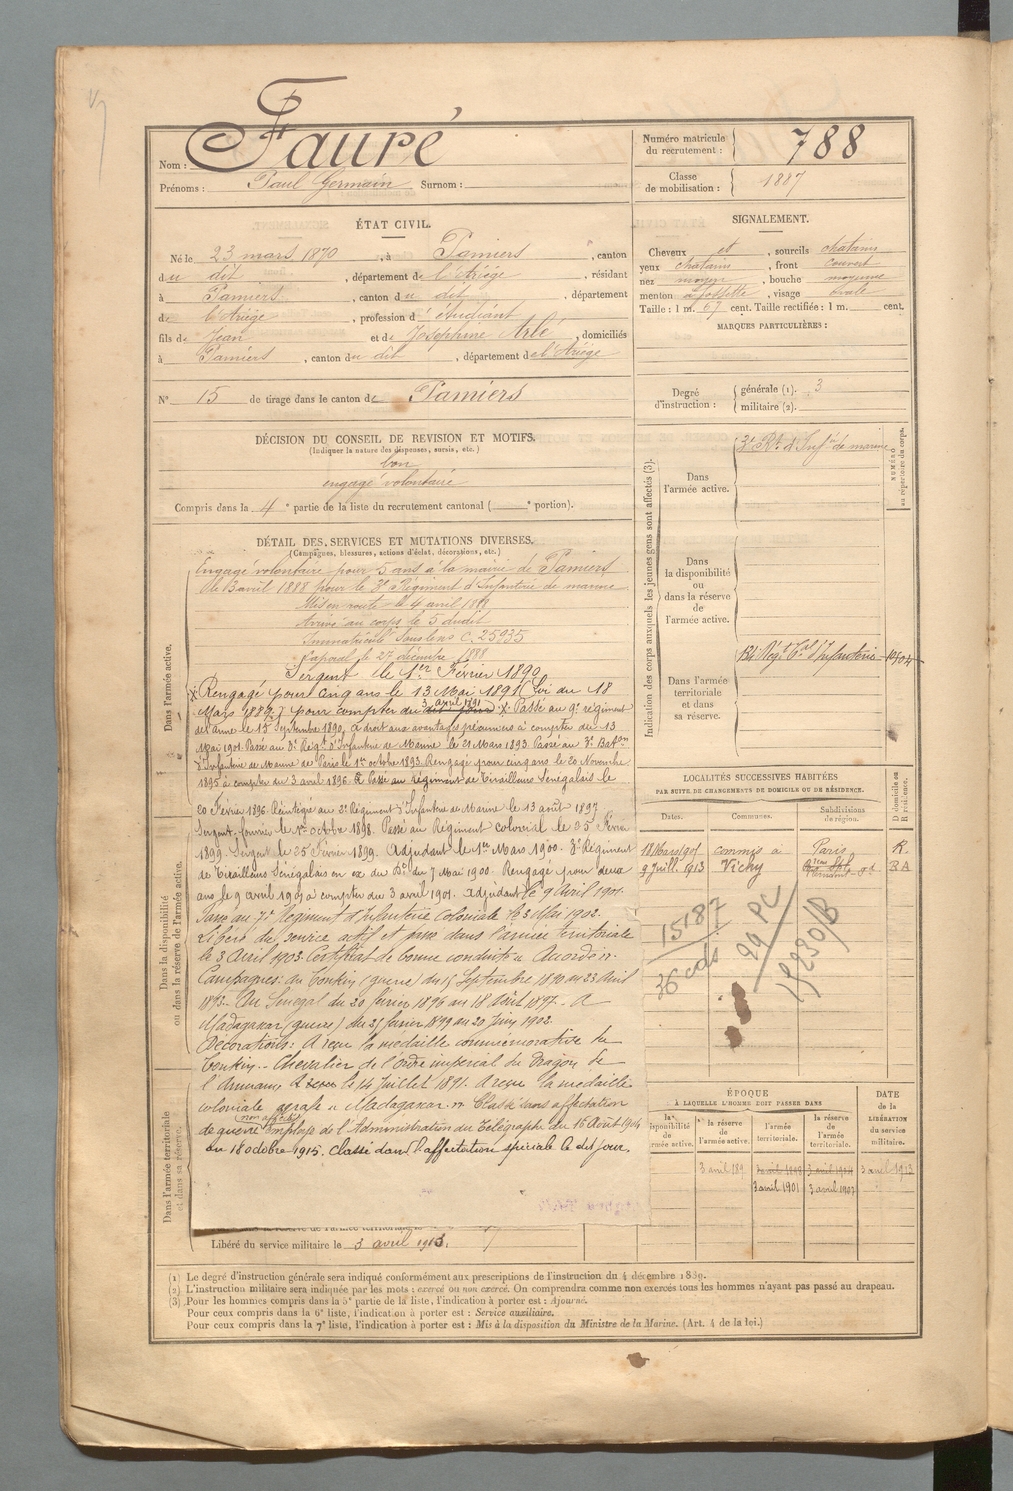 Nom : Fauré
Prénoms : Paul Germain Surnom :
Numéro matricule du recrutement : 788
Classe de mobilisation : 1887
ÉTAT CIVIL.
Né le 23 mars 1870, à Pamiers, canton
du dit, département de l'Ariége, résidant
à Pamiers, canton du dit, département
de l'Ariége, profession d'étudiant
fils de Jean et de Joséphine Arlé, domiciliés
à Pamiers, canton du dit, département de l'Ariége
N° 15 de tirage dans le canton de Pamiers
SIGNALEMENT.
Cheveux et, sourcils chatains
yeux chatains, front couvert
nez moyen, bouche moyenne
menton à fossette, visage ovale
Taille : 1 m. 67 cent. Taille rectifiée : 1 m. cent.
MARQUES PARTICULIÈRES :
Degré d'instruction : générale (1). 3
militaire (2).
DÉCISION DU CONSEIL DE REVISION ET MOTIFS.
(Indiquer la nature des dispenses, sursis, etc.)
bon
engagé volontaire
Compris dans la 4e partie de la liste du recrutement cantonal ( e portion).
DÉTAIL DES SERVICES ET MUTATIONS DIVERSES.
(Campagnes, blessures, actions d'éclat, décorations, etc.)
Dans l'armée active.
Engagé volontaire pour 5 ans à la mairie de Pamiers
le 3 avril 1888 pour le 3e Régiment d'Infanterie de marine
Mis en route le 4 avril 1888
Arrivé au corps le 5 dudit
Immatriculé sous le no C. 25935
Caporal le 27 décembre 1888
Sergent le 1er Février 1890
Rengagé pour cinq ans le 13 Mai 1891 (Loi du 18
Mars 1889) pour compter du dit jour 3 avril 1891 Passé au 9e régiment
de l'arme le 15 Septembre 1890, a droit aux avantages pécuniers à compter du 13
Mai 1901. Passé au 3e Régt d'Infanterie de Marine le 21 Mars 1893. Passé au 3e Baton
d'Infanterie de Marine de Paris le 1er octobre 1893. Rengagé pour cinq ans le 20 Novembre
1895 à compter du 3 avril 1896. Passé au Régiment de Tirailleurs Sénégalais le
20 Février 1896. Réintégré au 3e Régiment d'Infanterie de Marine le 13 août 1897
Sergent fourrier le 1er octobre 1898. Passé au Régiment colonial le 25 Février
1899. Sergent le 25 Février 1899. Adjudant le 1er Mars 1900. 3e Régiment
de Tirailleurs Sénégalais en ex du Don du 7 Mai 1900. Rengagé pour deux
ans le 9 avril 1901 à compter du 3 avril 1901. Adjudant le 9 Avril 1901.
Passé au 7e Régiment d'Infanterie Coloniale le 3 Mai 1902.
Libéré du service actif et passé dans l'armée territoriale
le 3 Avril 1903. Certificat de bonne conduite "Accordé".
Campagnes : au Tonkin (guerre) du 15 Septembre 1890 au 23 Avril
1893. Au Sénégal du 20 février 1896 au 18 Août 1897. A
Madagascar (guerre) du 25 février 1899 au 20 Juin 1902.
Décorations : A reçu la médaille commémorative du
Tonkin. Chevalier de l'ordre impérial du Dragon de
l'Annam le 14 Juillet 1891. A reçu la médaille
coloniale agrafe "Madagascar". Classé sans affectation
de guerre (non affecté) Employé de l'Administration du Télégraphe du 16 Août 1904
au 18 octobre 1915. Classé dans l'affectation spéciale le dit jour.
Dans la disponibilité ou dans la réserve de l'armée active.
Dans l'armée territoriale et dans sa réserve.
Libéré du service militaire le 3 avril 1913.
Indication des corps auxquels les jeunes gens sont affectés (3).
NUMÉRO au répertoire du corps.
Dans l'armée active.
3e Rt d'Infie de marine
Dans la disponibilité ou dans la réserve de l'armée active.
Dans l'armée territoriale et dans sa réserve.
LOCALITÉS SUCCESSIVES HABITÉES
PAR SUITE DE CHANGEMENTS DE DOMICILE OU DE RÉSIDENCE.
Dates. Communes. Subdivisions de région. D domicile ou R résidence.
commis à Paris R.
9 Juill. 1913 Vichy RA
15187
36 cds
29 PC
15230/B
ÉPOQUE
À LAQUELLE L'HOMME DOIT PASSER DANS
la disponibilité de l'armée active. la réserve de l'armée active. l'armée territoriale. la réserve de l'armée territoriale.
DATE de la LIBÉRATION du service militaire.
3 avril 189 3 avril 1913
3 avril 1901 3 avril 1907
(1) Le degré d'instruction générale sera indiqué conformément aux prescriptions de l'instruction du 4 décembre 1889.
(2) L'instruction militaire sera indiquée par les mots : exercé ou non exercé. On comprendra comme non exercés tous les hommes n'ayant pas passé au drapeau.
(3) Pour les hommes compris dans la 5e partie de la liste, l'indication à porter est : Ajourné.
Pour ceux compris dans la 6e liste, l'indication à porter est : Service auxiliaire.
Pour ceux compris dans la 7e liste, l'indication à porter est : Mis à la disposition du Ministre de la Marine. (Art. 4 de la loi.)